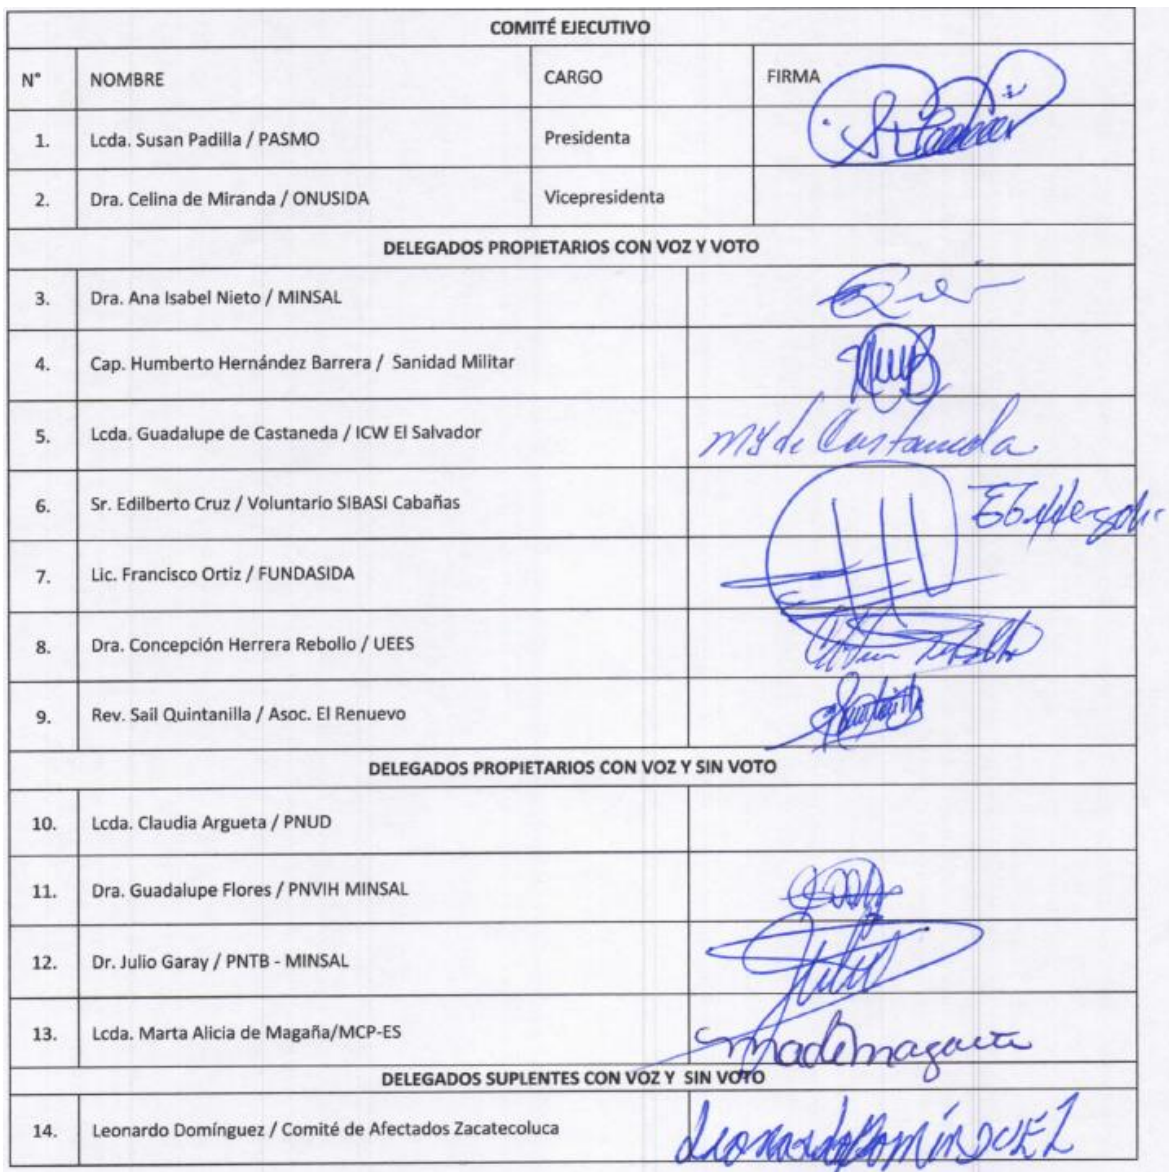 COMITÉ EJECUTIVO
N° NOMBRE CARGO FIRMA
1. Lcda. Susan Padilla / PASMO Presidenta
2. Dra. Celina de Miranda / ONUSIDA Vicepresidenta
DELEGADOS PROPIETARIOS CON VOZ Y VOTO
3. Dra. Ana Isabel Nieto / MINSAL
4. Cap. Humberto Hernández Barrera / Sanidad Militar
5. Lcda. Guadalupe de Castaneda / ICW El Salvador de Castaneda
6. Sr. Edilberto Cruz / Voluntario SIBASI Cabañas
7. Lic. Francisco Ortiz / FUNDASIDA
8. Dra. Concepción Herrera Rebollo / UEES
9. Rev. Sail Quintanilla / Asoc. El Renuevo
DELEGADOS PROPIETARIOS CON VOZ Y SIN VOTO
10. Lcda. Claudia Argueta / PNUD
11. Dra. Guadalupe Flores / PNVIH MINSAL
12. Dr. Julio Garay / PNTB - MINSAL
13. Lcda. Marta Alicia de Magaña/MCP-ES
DELEGADOS SUPLENTES CON VOZ Y SIN VOTO
14. Leonardo Domínguez / Comité de Afectados Zacatecoluca Leonardo Domínguez